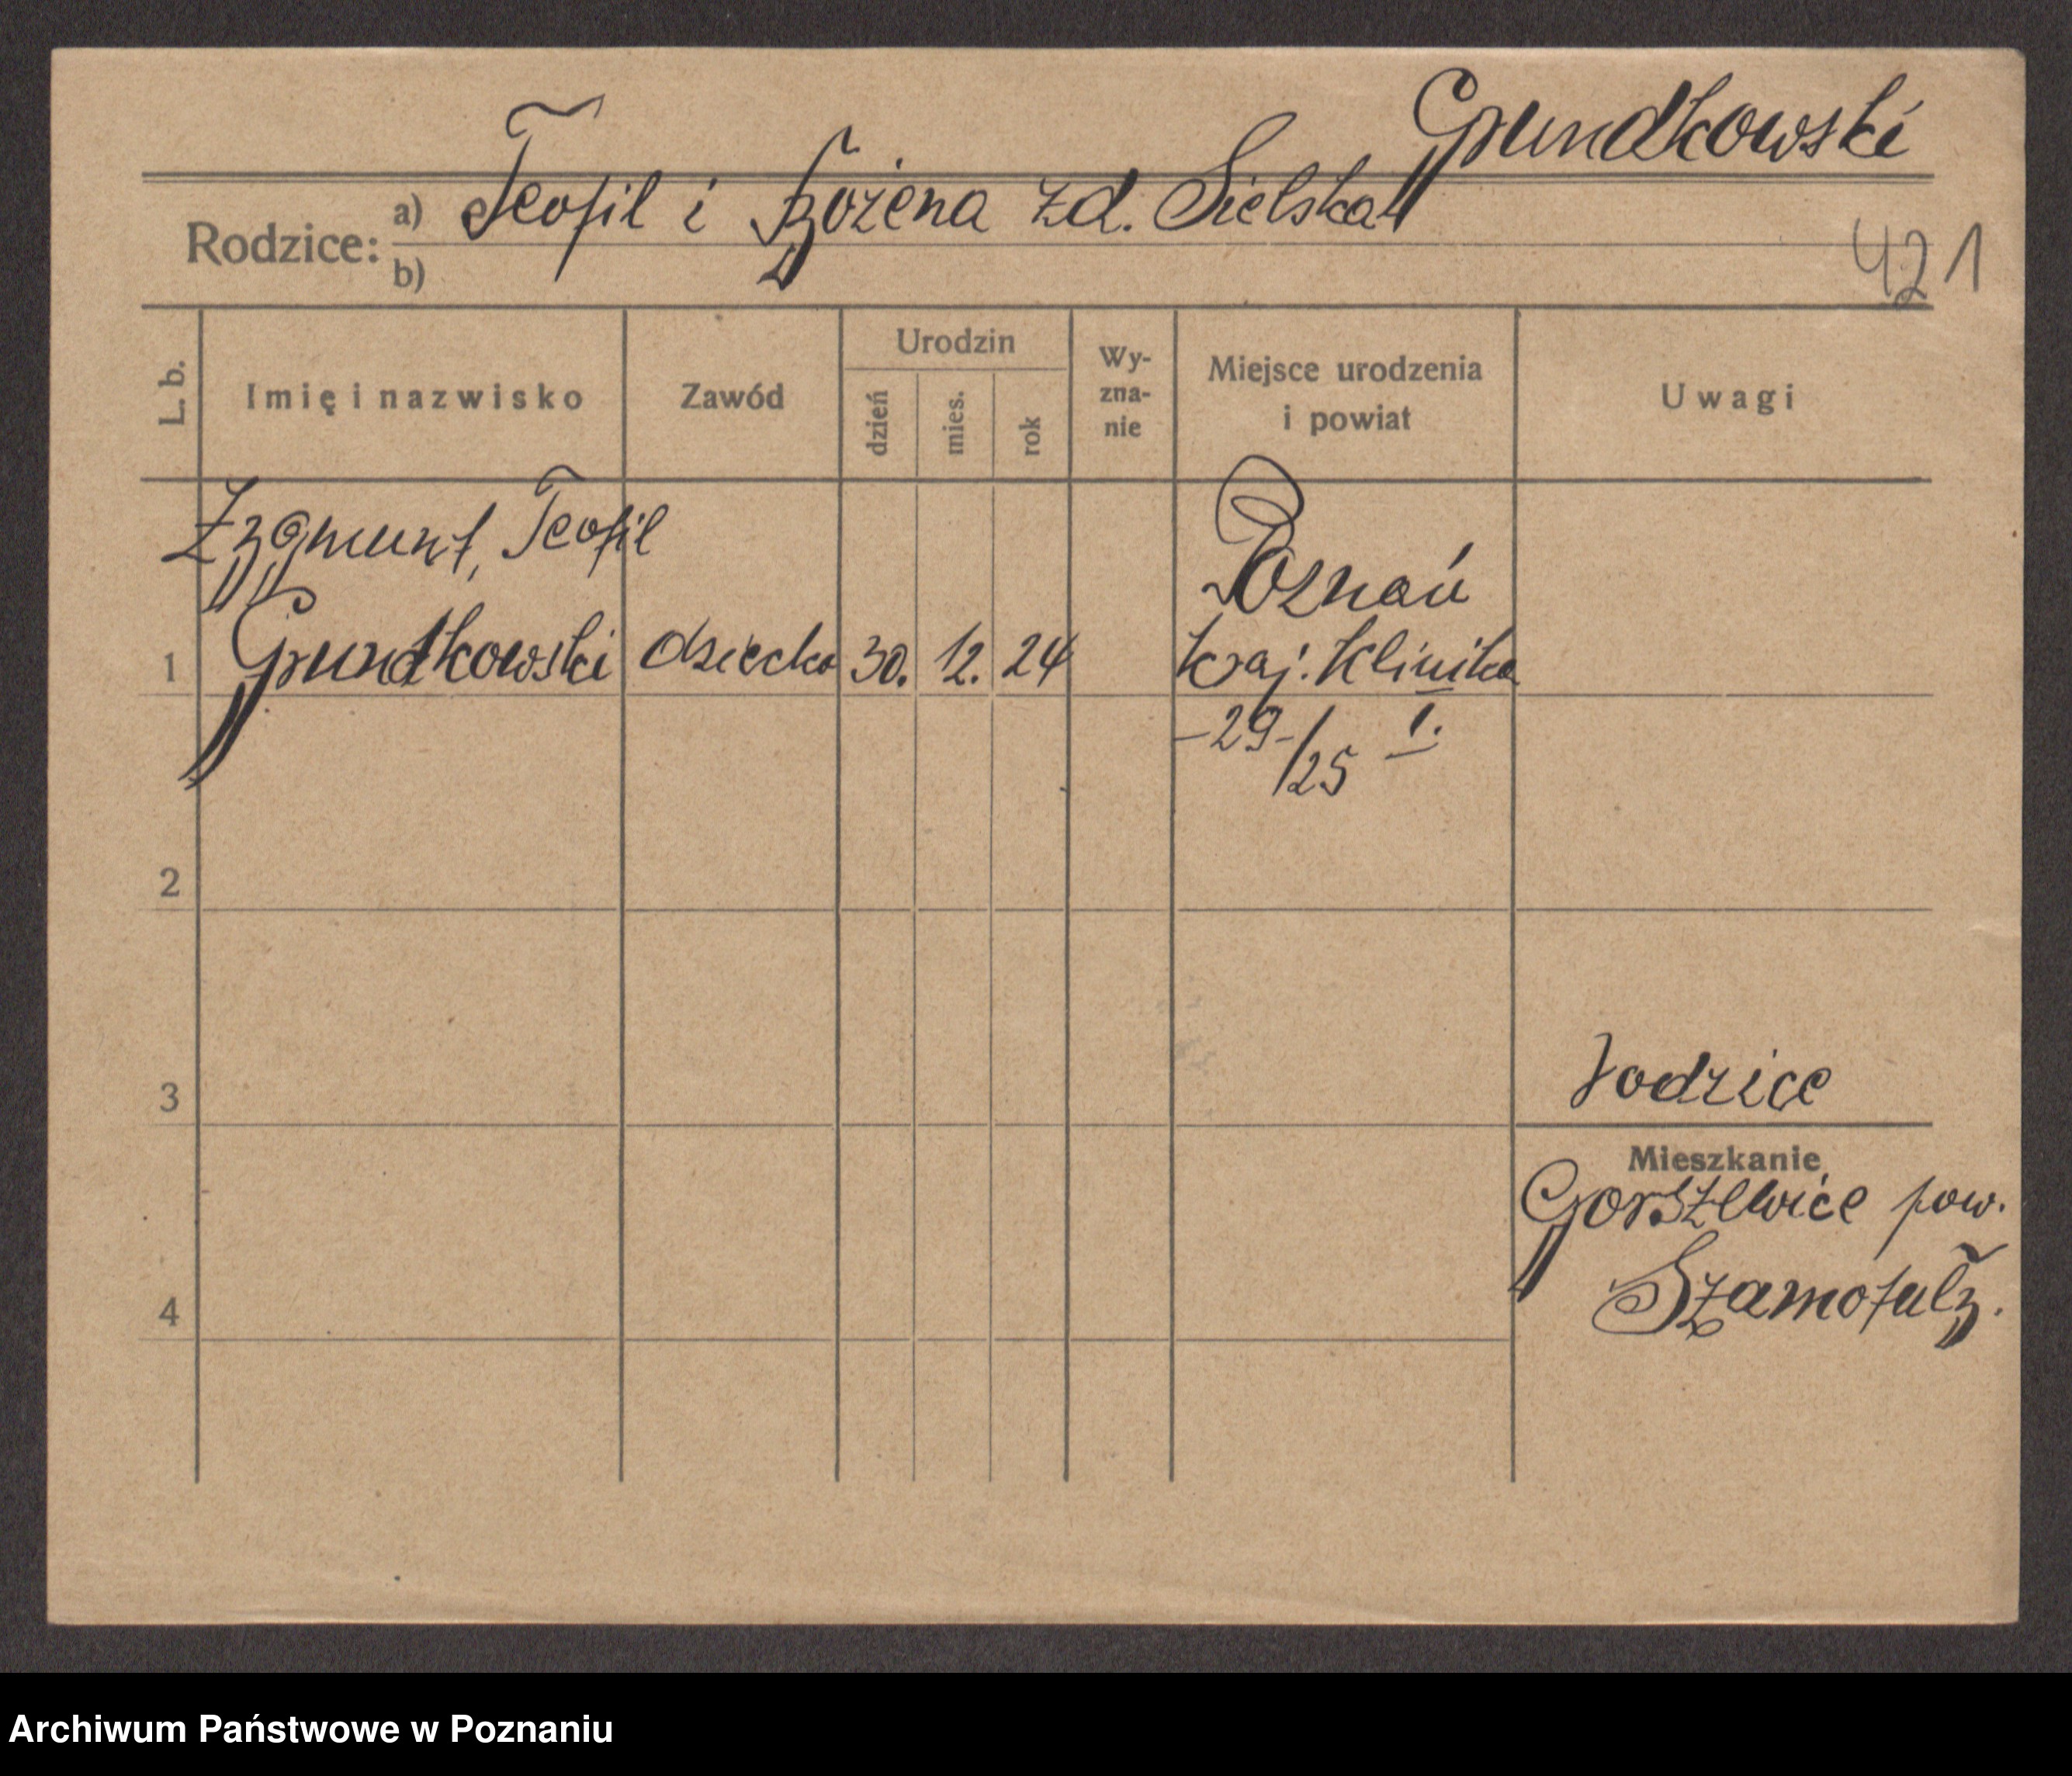 Grundkowski
Rodzice: a) Teofil i Bożena zd. Sielska
b)
421
L. b. Imię i nazwisko Zawód Urodzin dzień mies. rok Wy-zna-nie Miejsce urodzenia i powiat Uwagi
Zygmunt, Teofil
Poznań
1 Grundkowski dziecko 30. 12. 24 Kraj. Klinika
-29-/25 I.
2
3
rodzice
Mieszkanie
Gorszewice pow.
Szamotuły.
4
Archiwum Państwowe w Poznaniu